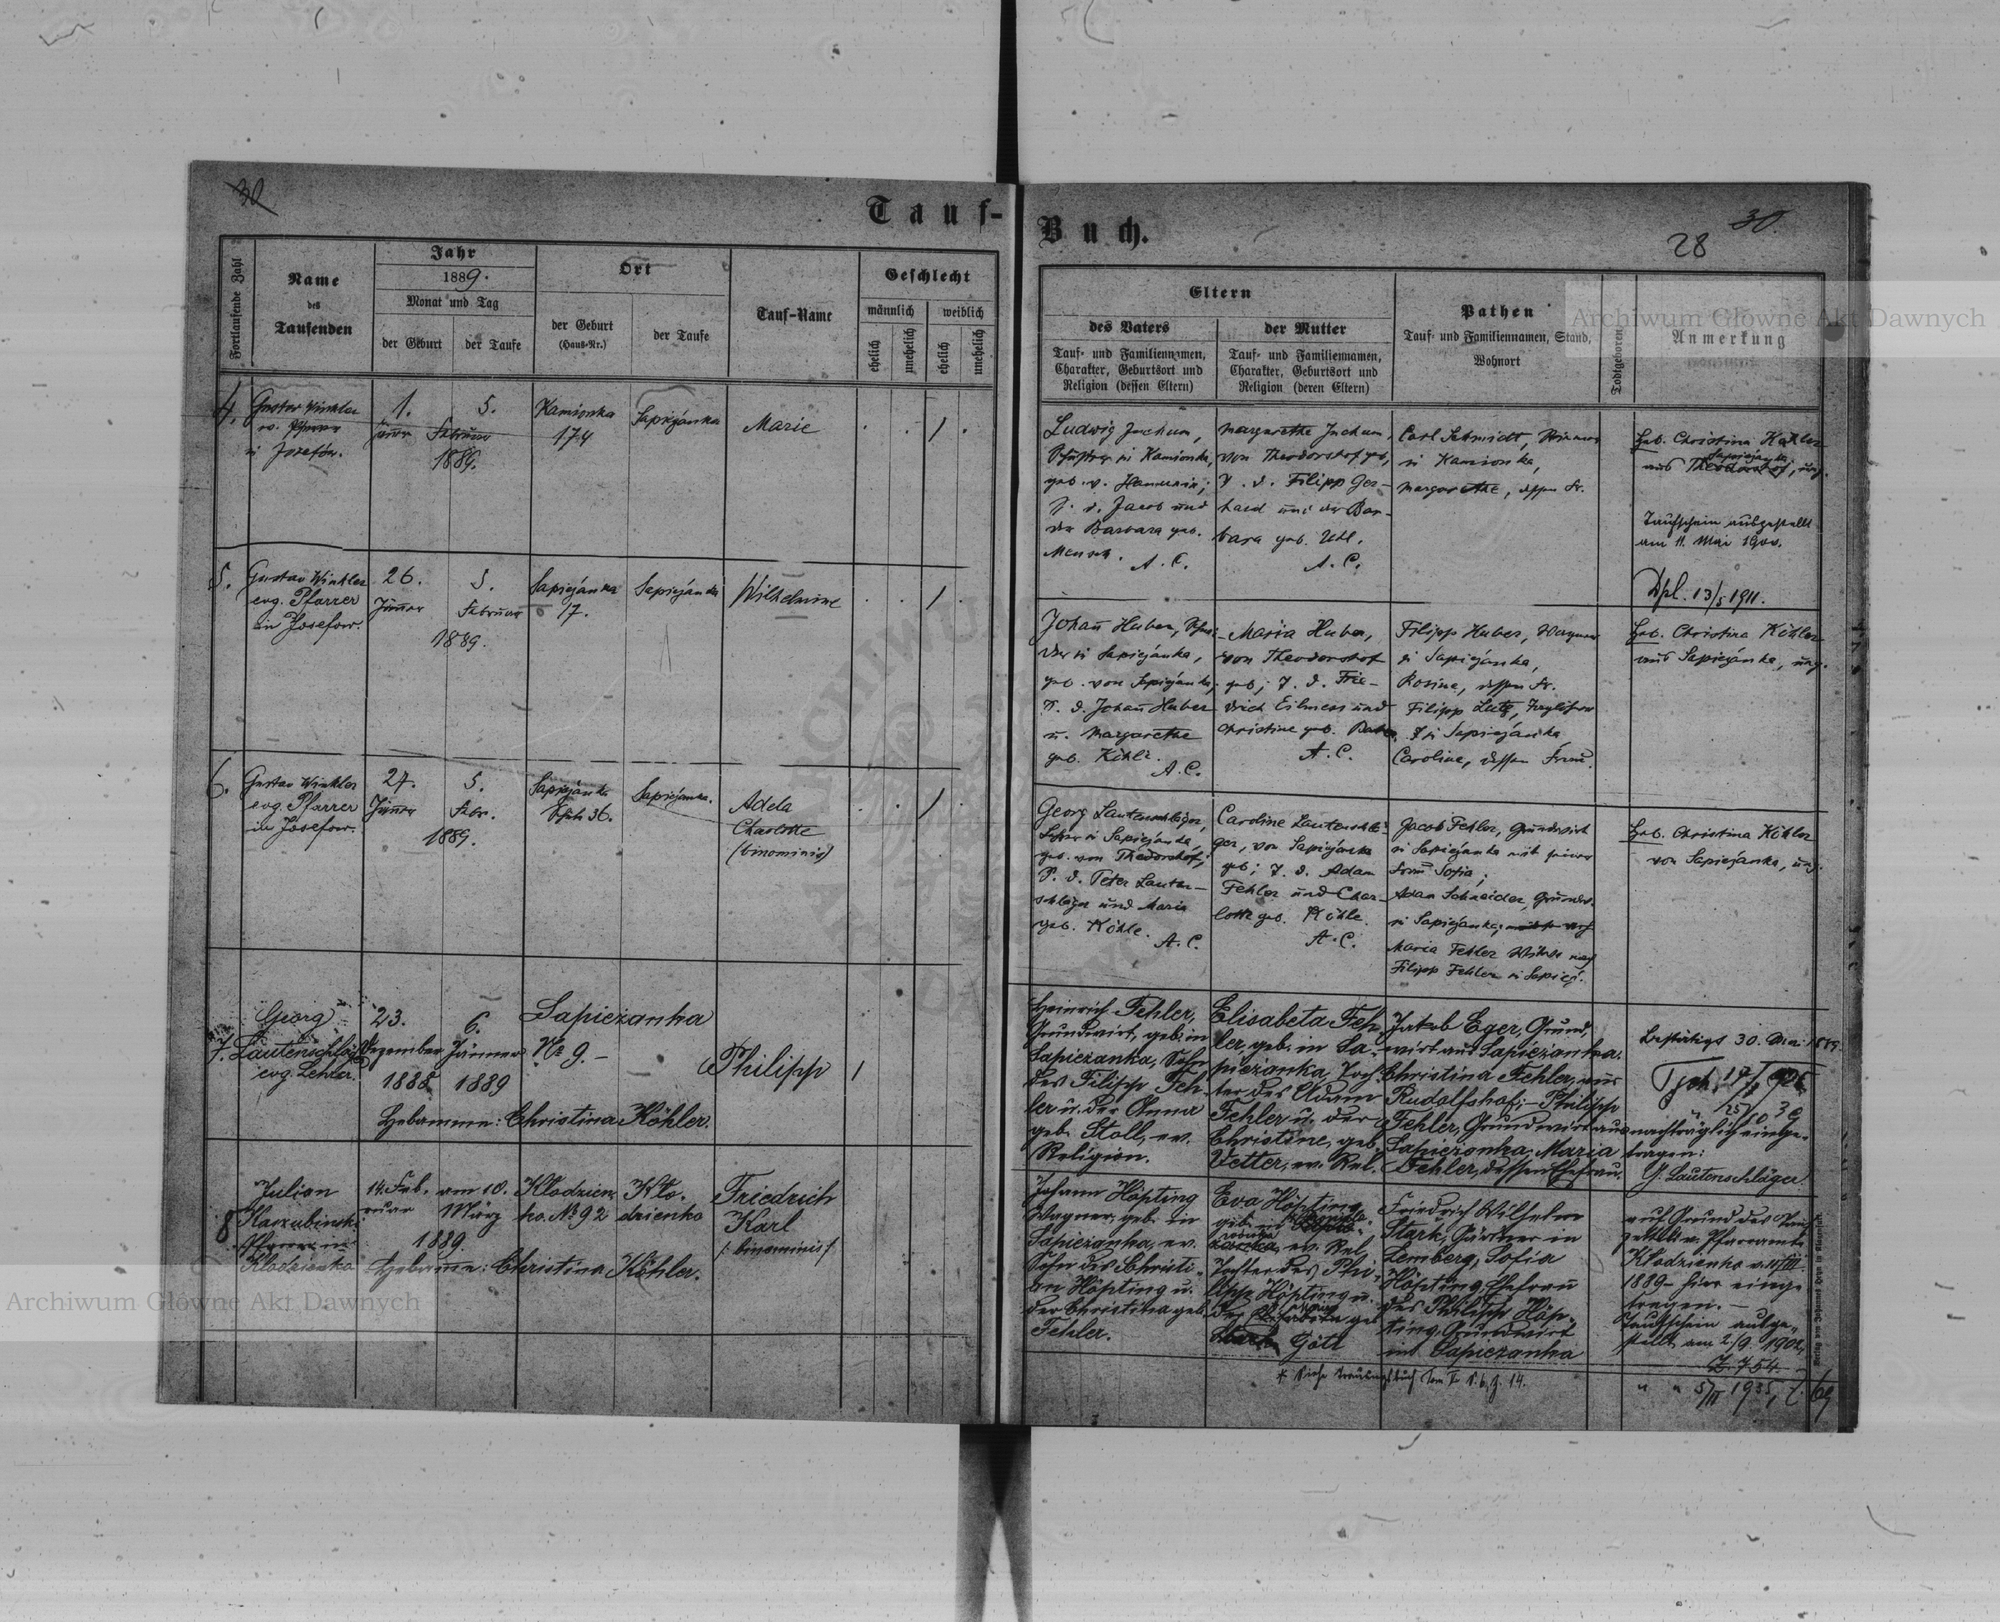 30
Tauf-
Fortlaufende Zahl
Name
des
Taufenden
Jahr
1889.
Monat und Tag
der Geburt
der Taufe
Ort
der Geburt
(Haus-Nr.)
der Taufe
Tauf-Name
Geschlecht
männlich
weiblich
ehelich
unehelich
ehelich
unehelich
4.
Gustav Winkler
ev. Pfarrer
in Josefow.
1.
Jänner
5.
Februar
1889.
Kamionka
174
Sapiezanka
Marie
1
5.
Gustav Winkler
evg. Pfarrer
in Josefow.
26.
Jänner
5.
Februar
1889.
Sapiezanka
17.
Sapiezanka
Wilhelmine
1
6.
Gustav Winkler
evg. Pfarrer
in Josefow.
27.
Jänner
5.
Febr.
1889.
Sapiezanka
36.
Sapiezanka.
Adela
Charlotte
(binominis)
1
7.
Georg
Lautenschläger
evg. Lehrer.
23.
Dezember
1888
6.
Jänner
1889
Sapiezanka
No 9. –
Philipp
1
Hebamme: Christina Köhler.
8
Julian
Karzubinski
Pfarrer in
Klodzienko
14. Feb.
ruar
am 10.
März
1889
Klodzien
ko. No 92
Klo.
dzienko
Friedrich
Karl
/: binominis:/
Hebamme: Christina Köhler.
Buch.
30.
28
Eltern
des Vaters
Tauf- und Familiennamen,
Charakter, Geburtsort und
Religion (dessen Eltern)
der Mutter
Tauf- und Familiennamen,
Charakter, Geburtsort und
Religion (deren Eltern)
Pathen
Tauf- und Familiennamen, Stand,
Wohnort
Todtgeboren
Anmerkung
Ludwig Juchum,
in Kamionka,
geb. v.
S. d. Jacob und
der Barbara geb.
A. C.
Margarethe Juchum,
von Theodorshof geb,
T. d. Filipp Ger-
hard und der Bar-
bara geb. Uhl.
A. C.
Carl Schmidt,
in Kamionka,
Margarethe, dessen Fr.
Heb. Christina Köhler
Sapiezanka
aus Theodorshof, ung.
Taufschein ausgestellt
am 11. Mai 1900.
Dpl. 13/5 1911.
Johann Huber,
in Sapiezanka,
geb. von Sapiezanka;
S. d. Johann Huber
u. Margarethe
geb. Köhle.
A. C.
Maria Huber,
von Theodorshof
geb; T. d. Frie-
drich Eilmess und
Christine geb.
A. C.
Filipp Huber, Wagner
in Sapiezanka,
Rosine, dessen Fr.
Filipp Lutz,
in Sapiezanka,
Caroline, dessen Frau.
Heb. Christina Köhler
aus Sapiezanka, ung.
Georg Lautenschläger,
Lehrer in Sapiezanka,
geb. von Theodorshof;
S. d. Peter Lauten-
schläger und Maria
geb. Köhle.
A. C.
Caroline Lautenschlä-
ger, von Sapiezanka
geb; T. d. Adam
Fehler und Char-
lotte geb. Köhle.
A. C.
Jacob Fehler, Grundwirt
in Sapiezanka mit seiner
Frau Sofia;
Adam Schneider, Grundw.
in Sapiezanka;
Maria Fehler Witwe nach
Filipp Fehler in Sapiez.
Heb. Christina Köhler
von Sapiezanka, ung.
Heinrich Fehler,
Grundwirt, geb. in
Sapiezanka, Sohn
des Filipp Feh-
ler u. der Anna
geb. Stoll, ev.
Religion.
Elisabeta Feh-
ler, geb. in Sa-
piezanka, Toch-
ter des Adam
Fehler u. der
Christine, geb.
Vetter, ev. Rel.
Jakob Eger, Grund-
wirt aus Sapiezanka.
Christina Fehler, aus
Rudolfshof; – Philipp
Fehler, Grundwirt aus
Sapiezanka; Maria
Fehler, dessen Ehefrau.
Bestätigt 30. Mai 1889.
nachträglich einge-
tragen:
G. Lautenschläger
Johann Höpting
Wagner, geb. in
Sapiezanka, ev.
Sohn des Christi-
an Höpting u.
der Christina geb.
Fehler.
Eva Höpting
geb. in
ev. Rel.
Tochter des Phi-
lipp Höpting u.
der geb
Götz
Friedrich Wilhelm
Stark, Gärtner in
Lemberg, Sofia
Höpting, Ehefrau
des Philipp Höp-
ting, Grundwirt
in Sapiezanka
auf Grund des
v. Pfarramte
Klodzienko
1889 – hier einge
tragen. –
Taufschein ausge-
stellt am 2./9. 1902,
Z. 754
" " 5/II 1935, Z. 69
* Siehe Trauungsbuch Tom I. S. 6, Z. 14.
Archiwum Główne Akt Dawnych
Archiwum Główne Akt Dawnych